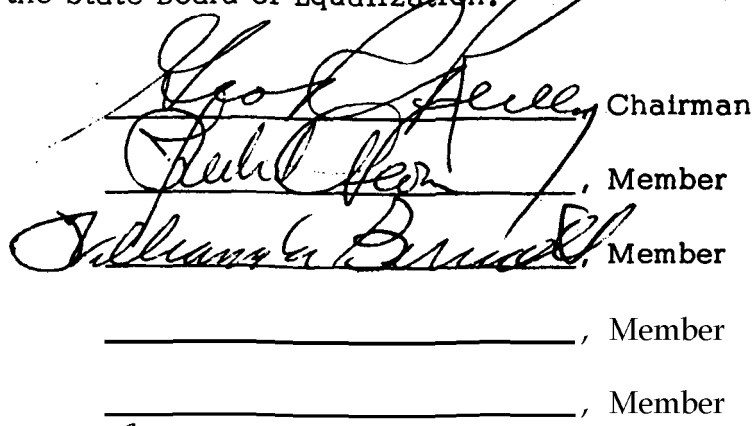 the State Board of Equalization.
Geo R Reilly, Chairman
, Member
William G Bennett, Member
, Member
, Member